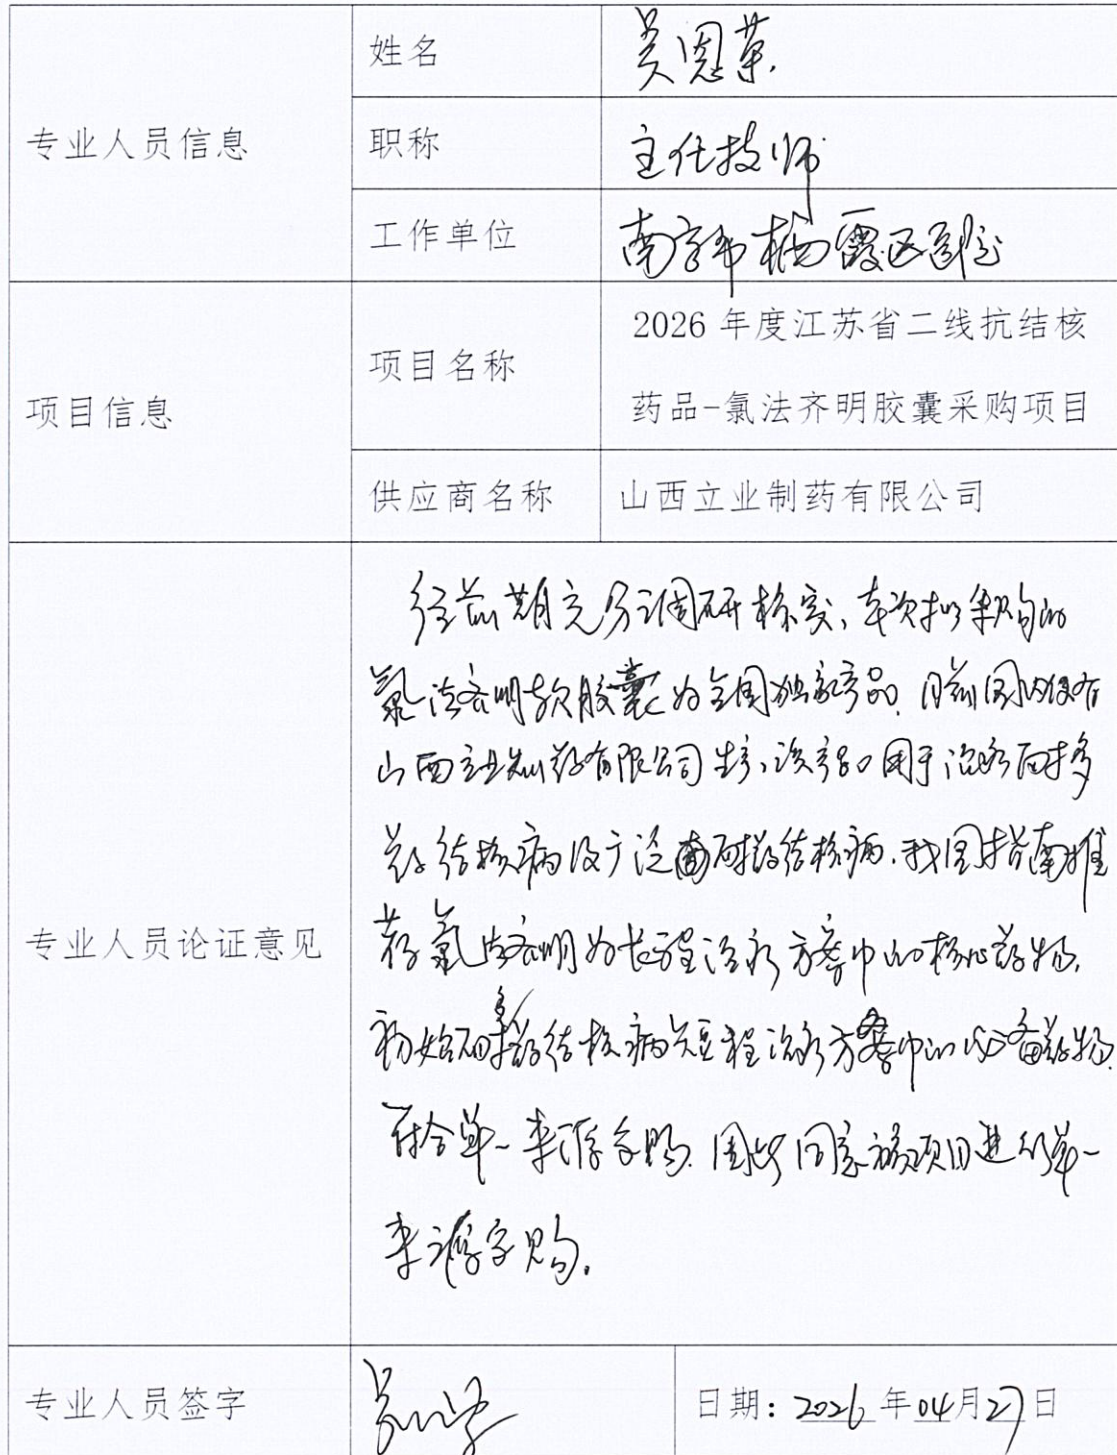 专业人员信息
姓名
吴恩荣
职称
主任技师
工作单位
南京市栖霞区医院
项目信息
项目名称
2026 年度江苏省二线抗结核
药品-氯法齐明胶囊采购项目
供应商名称
山西立业制药有限公司
专业人员论证意见
经前期充分调研核实、本次拟采购的
氯法齐明软胶囊为全国独家产品，目前国内仅有
山西立业制药有限公司生产，该产品用于治疗耐多
药结核病及广泛耐药结核病，我国指南推
荐氯法齐明为长程治疗方案中的核心药物，
初始耐多药结核病短程治疗方案中的必备药物，
符合单一来源采购，因此同意该项目进行单一
来源采购。
专业人员签字
日期：2026 年 04 月 27 日